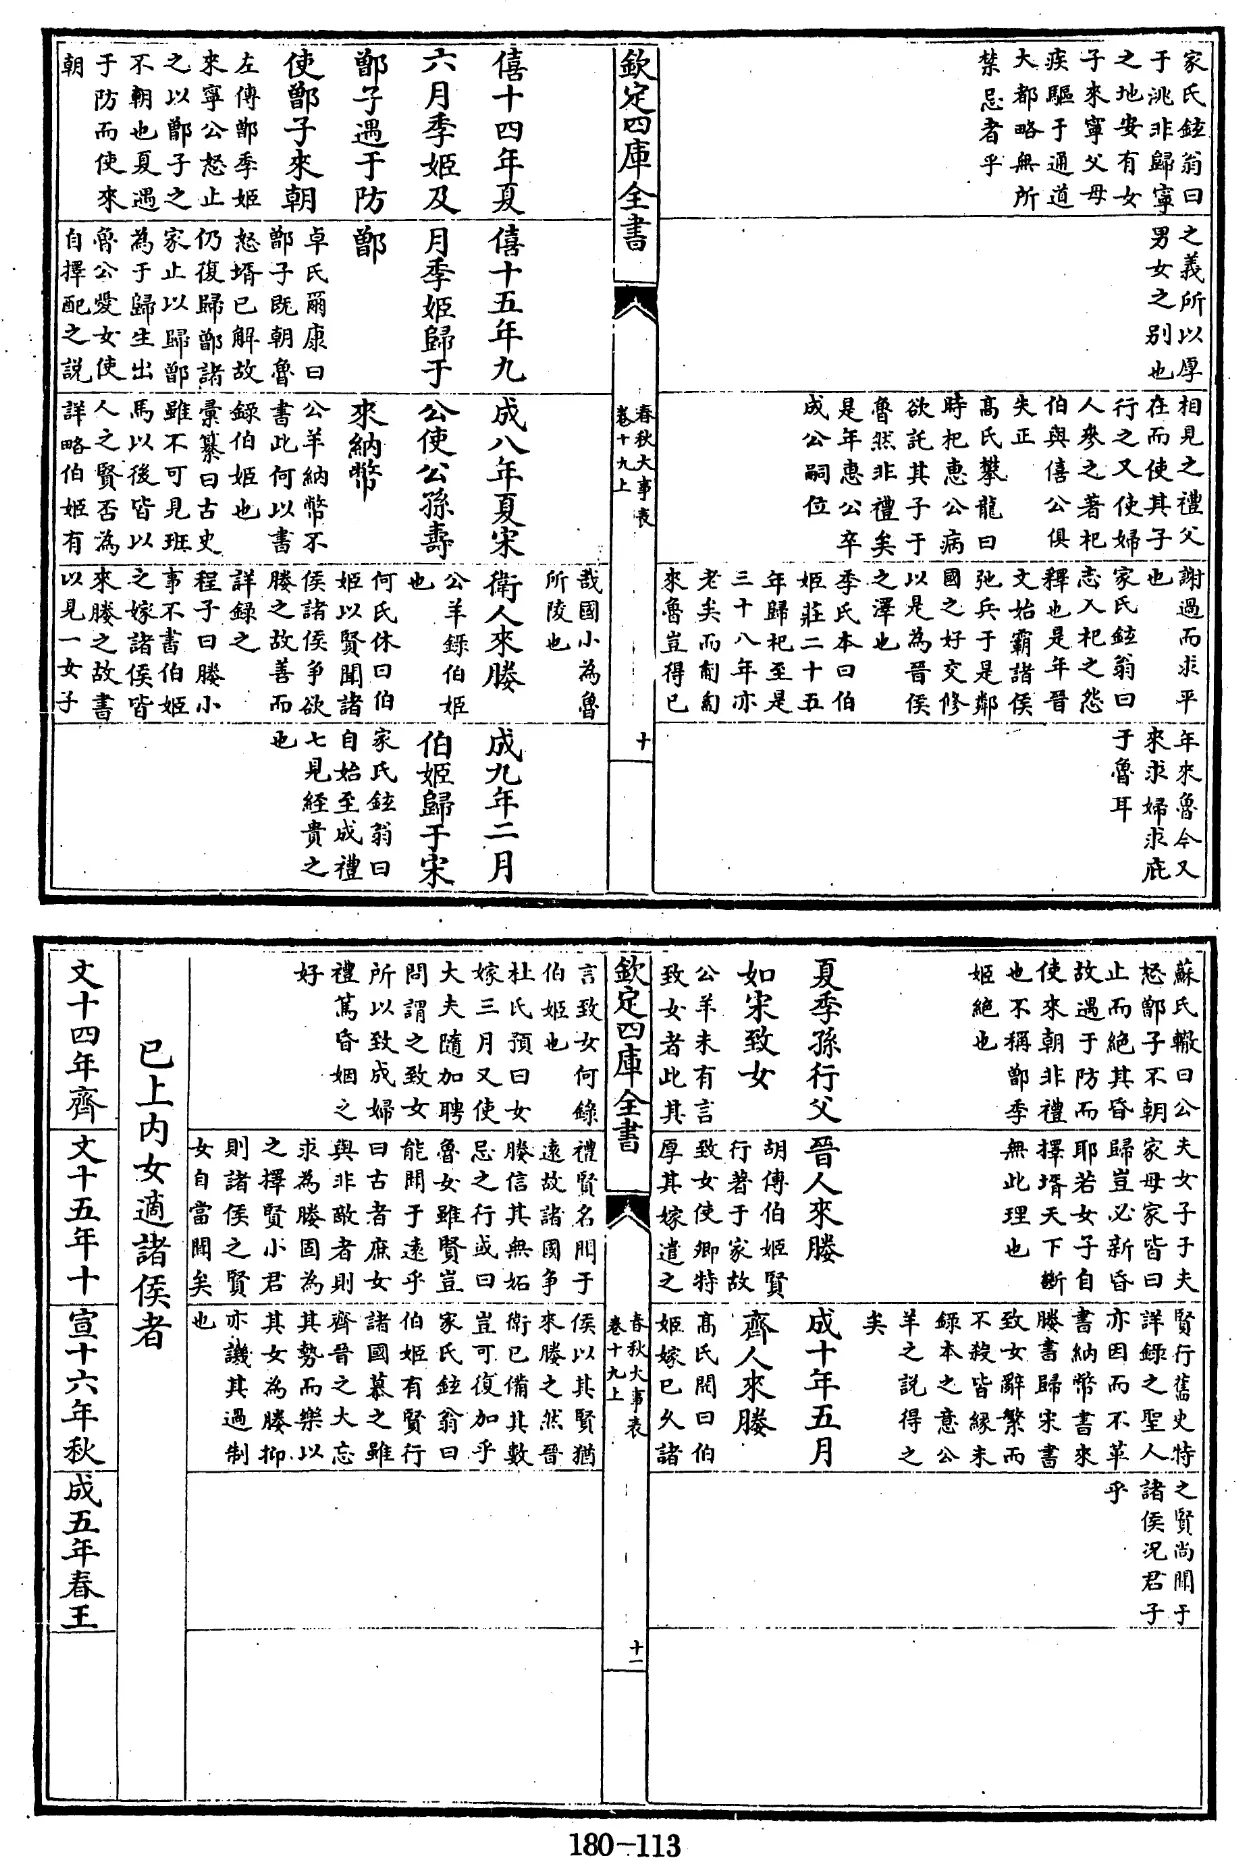 家氏鉉翁曰
于洮非歸寧
之地安有女
子來寧父母
疾驅于通道
大都略無所
禁忌者乎
之義所以厚
男女之别也
相見之禮父
在而使其子
行之又使婦
人參之著杞
伯與僖公俱
失正
髙氏攀龍曰
時杞惠公病
欲託其子于
魯然非禮矣
是年惠公卒
成公嗣位
謝過而求平
也
家氏鉉翁曰
志入杞之怨
釋也是年晉
文始霸諸侯
弛兵于是鄰
國之好交修
以是為晉侯
之澤也
季氏本曰伯
姬莊二十五
年歸杞至是
三十八年亦
老矣而匍匐
來魯豈得已
年來魯今又
來求婦求庇
于魯耳
欽定四庫全書
春秋大事表
卷十九上
十
僖十四年夏
六月季姬及
鄫子遇于防
使鄫子來朝
左傳鄫季姬
來寧公怒止
之以鄫子之
不朝也夏遇
于防而使來
朝
僖十五年九
月季姬歸于
鄫
卓氏爾康曰
鄫子既朝魯
怒壻已解故
仍復歸鄫諸
家止以歸鄫
為于歸生出
魯公愛女使
自擇配之説
成八年夏宋
公使公孫壽
來納幣
公羊納幣不
書此何以書
録伯姬也
彙纂曰古史
雖不可見班
馬以後皆以
人之賢否為
詳略伯姬有
哉國小為魯
所陵也
衛人來媵
公羊錄伯姬
也
何氏休曰伯
姬以賢聞諸
侯諸侯爭欲
媵之故善而
詳録之
程子曰媵小
事不書伯姬
之嫁諸侯皆
來媵之故書
以見一女子
成九年二月
伯姬歸于宋
家氏鉉翁曰
自始至成禮
七見經貴之
也
蘇氏轍曰公
怒鄫子不朝
止而絕其昏
故遇于防而
使來朝非禮
也不稱鄫季
姬絶也
夫女子子夫
家母家皆曰
歸豈必新昏
耶若女子自
擇壻天下斷
無此理也
賢行舊史特
詳錄之聖人
亦因而不革
書納幣書來
媵書歸宋書
致女辭繁而
不殺皆緣未
錄本之意公
羊之説得之
矣
之賢尚聞于
諸侯况君子
乎
夏季孫行父
如宋致女
公羊未有言
致女者此其
晉人來媵
胡傳伯姬賢
行著于家故
致女使卿特
厚其嫁遣之
成十年五月
齊人來媵
髙氏閌曰伯
姬嫁已久諸
欽定四庫全書
春秋大事表
卷十九上
十一
言致女何錄
伯姬也
杜氏預曰女
嫁三月又使
大夫隨加聘
問謂之致女
所以致成婦
禮篤昏姻之
好
禮賢名聞于
遠故諸國爭
媵信其無妬
忌之行或曰
魯女雖賢豈
能聞于遠乎
曰古者庶女
與非敵者則
求為媵固為
之擇賢小君
則諸侯之賢
女自當聞矣
侯以其賢猶
來媵之然晉
衛已備其數
豈可復加乎
家氏鉉翁曰
伯姬有賢行
諸國慕之雖
齊晉之大忘
其勢而樂以
其女為媵抑
亦譏其過制
也
已上内女適諸侯者
文十四年齊
文十五年十
宣十六年秋
成五年春王
180-113